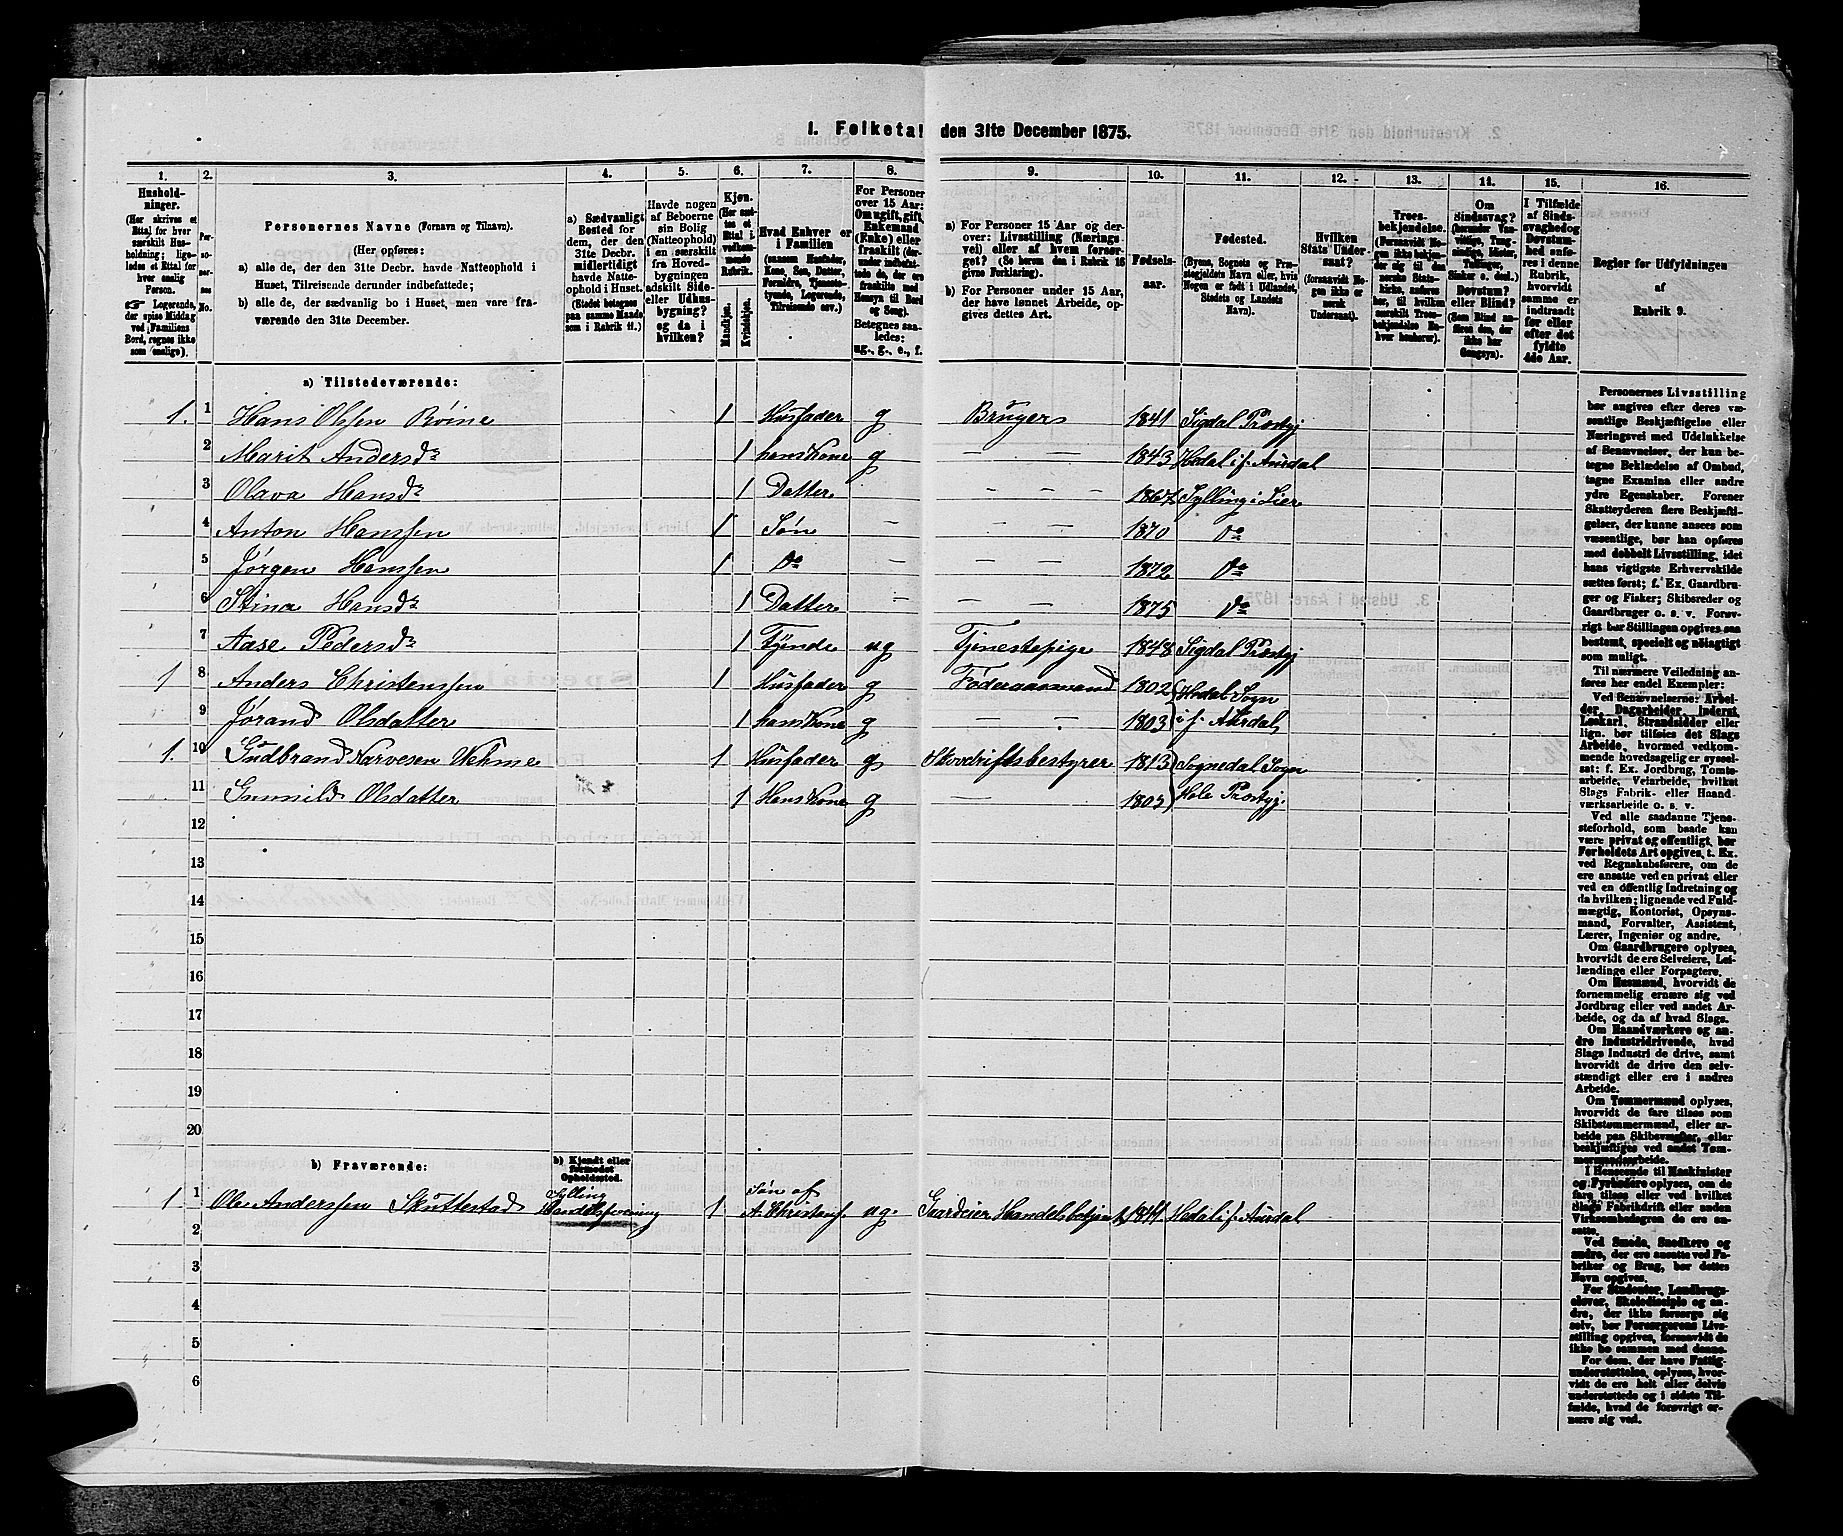 I. Folketal den 31te December 1875.
1. 2. 3. 4. 5. 6. 7. 8. 9. 10. 11. 12. 13. 14. 15. 16.
Husholdninger.
(Her skrives et Ettal for hver særskilt Husholdning; ligeledes et Ettal for hver enslig Person.
☞ Logerende, der spise Middag ved Familiens Bord, regnes ikke som enslige).
Personernes No.
Personernes Navne (Fornavn og Tilnavn).
(Her opføres:
a) alle de, der den 31te Decbr. havde Natteophold i Huset, Tilreisende derunder indbefattede;
b) alle de, der sædvanlig bo i Huset, men vare fraværende den 31te December.
a) Sædvanligt Bosted for dem, der den 31te Decbr. midlertidigt havde Natteophold i Huset. (Stedet betegnes paa samme Maade som i Rubrik 11.)
Havde nogen af Beboerne sin Bolig (Natteophold) i en særskilt fra Hovedbygningen adskilt Side- eller Udhusbygning? og da i hvilken?
Kjøn. (Her sættes et Ettal i vedkommende Rubrik.
Mandkjøn. Kvindekjøn.
Hvad Enhver er i Familien
(saasom Husfader, Kone, Søn, Datter, Forældre, Tjenestetyende, Logerende, Tilreisende osv.)
For Personer over 15 Aar: Om ugift, gift, Enkemand (Enke) eller fraskilt (derunder indbefattede de, der ere fraskilte med Hensyn til Bord og Seng). Betegnes saaledes: ug., g., e., f.
a) For Personer 15 Aar og derover: Livsstilling (Næringsvei) eller af hvem forsørget? (Se herom den i Rubrik 16 givne Forklaring).
b) For Personer under 15 Aar, der have lønnet Arbeide, opgives dettes Art.
Fødselsaar.
Fødested.
(Byens, Sognets og Præstegjeldets Navn eller, hvis Nogen er født i Udlandet, Stedets og Landets Navn).
Hvilken Stats Undersaat?
(forsaavidt Nogen ikke er norsk Undersaat).
Troesbekjendelse.
(Forsaavidt Nogen ikke bekjender sig til den norske Statskirke, anføres her, til hvilken særskilt Troesbekjendelse Enhver henhører).
Om Sindssvag? (herunder Vanvittige, Tungsindige, Idioter, Tullinger, Sinker o. desl.) Døvstum? eller Blind? (Som Blind anføres den, der ikke har Gangsyn).
I Tilfælde af Sindssvaghed og Døvstumhed anføres i denne Rubrik, hvorvidt samme er indtraadt før eller efter det fyldte 4de Aar.
Regler for Udfyldningen
af
Rubrik 9.
a) Tilstedeværende:
1. 1 Hans Olssen Röine 1 Husfader g Bruger 1841 Sigdal Prstgj
2 Marit Andersdr 1 hans Kone g — — 1843 Hedal i f. Aurdal
3 Olava Hansdr 1 Datter — — — 1867 Sylling i Lier
4 Anton Hanssen 1 Søn — — — 1870 do
5 Jørgen Hanssen 1 do — — — 1872 do
6 Stina Hansdr 1 Datter — — — 1875 do
7 Aase Pedersdr 1 Tjende ug Tjenestepige 1848 Sigdal Prstgj
1 8 Anders Christenssen 1 Husfader g Föderaasmand 1802 Hedal Sogn
9 Jørand Olsdatter 1 hans Kone g — — 1803 i f. Aurdal
1. 10 Gudbrand Narvesen Vehme 1 Husfader g Skovdriftsbestyrer 1813 Sognedal Sogn
11 Gunnild Olsdatter 1 Hans Kone g — 1803 Hole Prstgj.
12
13
14
15
16
17
18
19
20
b) Fraværende:
b) Kjendt eller formodet Opholdssted.
1. 1 Ole Anderssen Skuttestad Sylling Handelsforening 1 Søn af A. Christens. ug. Gaardeier Handelsbetjent 1841. Hedal i f. Aurdal
2
3
4
5
6
Personernes Livsstilling bør angives efter deres væsentlige Beskjæftigelse eller Næringsvei med Udelukkelse af Benævnelser, der kun betegne Beklædelse af Ombud, tagne Examina eller andre ydre Egenskaber. Forener Skatteyderen flere Beskjæftigelser, der kunne ansees som væsentlige, bør han opføres med dobbelt Livsstilling, idet hans vigtigste Erhvervskilde sættes først; f. Ex. Gaardbruger og Fisker; Skibsreder og Gaardbruger o. s. v. Forøvrigt bør Stillingen opgives saa bestemt, specielt og nøiagtigt som muligt.
Til nærmere Veiledning anføres her endel Exempler:
Ved Benævnelserne: Arbeider, Dagarbeider, Inderst, Løskarl, Strandsidder eller lign. bør tilføies det Slags Arbeide, hvormed vedkommende hovedsagelig er sysselsat; f. Ex. Jordbrug, Tomtearbeide, Veiarbeide, hvilket Slags Fabrik- eller Haandværksarbeide o. s. v.
Ved alle saadanne Tjenesteforhold, som baade kan være privat og offentligt, bør Forholdets Art opgives, t. Ex. ved Regnskabsførere, om de ere ansatte ved en privat eller ved en offentlig Indretning og da hvilken; lignende ved Fuldmægtig, Kontorist, Opsynsmand, Forvalter, Assistent, Lærer, Ingeniør og andre.
Om Gaardbrugere oplyses, hvorvidt de ere Selveiere, Leilændinge eller Forpagtere.
Om Husmænd, hvorvidt de fornemmelig ernære sig ved Jordbrug eller ved andet Arbeide, og da af hvad Slags.
Om Haandværkere og andre Industridrivende, hvad Slags Industri de drive, samt hvorvidt de drive den selvstændigt eller ere i andres Arbeide.
Om Tømmermænd oplyses, hvorvidt de fare tilsøs som Skibstømmermænd, eller arbeide paa Skibsværfter, eller beskjæftiges ved andet Tømmermandsarbeide.
I Henseende til Maskinister og Fyrbødere oplyses, om de fare tilsøs eller ved hvilket Slags Fabrikdrift eller anden Virksomhedsgren de ere ansatte.
Ved Smede, Snedkere og andre, der ere ansatte ved Fabriker og Brug, bør dettes Navn opgives.
For Studenter, Landbrugselever, Skoledisciple og andre, der ikke forsørge sig selv, bør Forsørgerens Livsstilling opgives, forsaavidt de ikke bo sammen med denne.
For dem, der have Fattigunderstøttelse, oplyses, hvorvidt de ere helt eller delvis understøttede og i sidste Tilfælde, hvad de forøvrigt ernære sig ved.